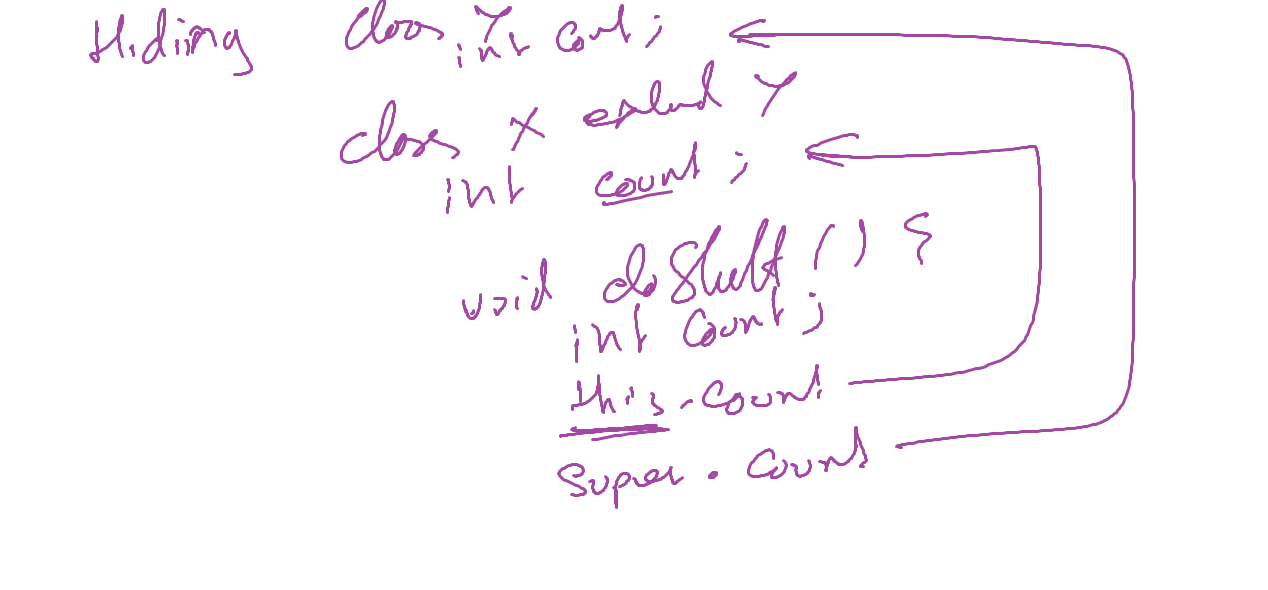 Hidiing class Y
int cout;
class X extend Y
int count;
void doStuff() {
int count;
this.count
super.count